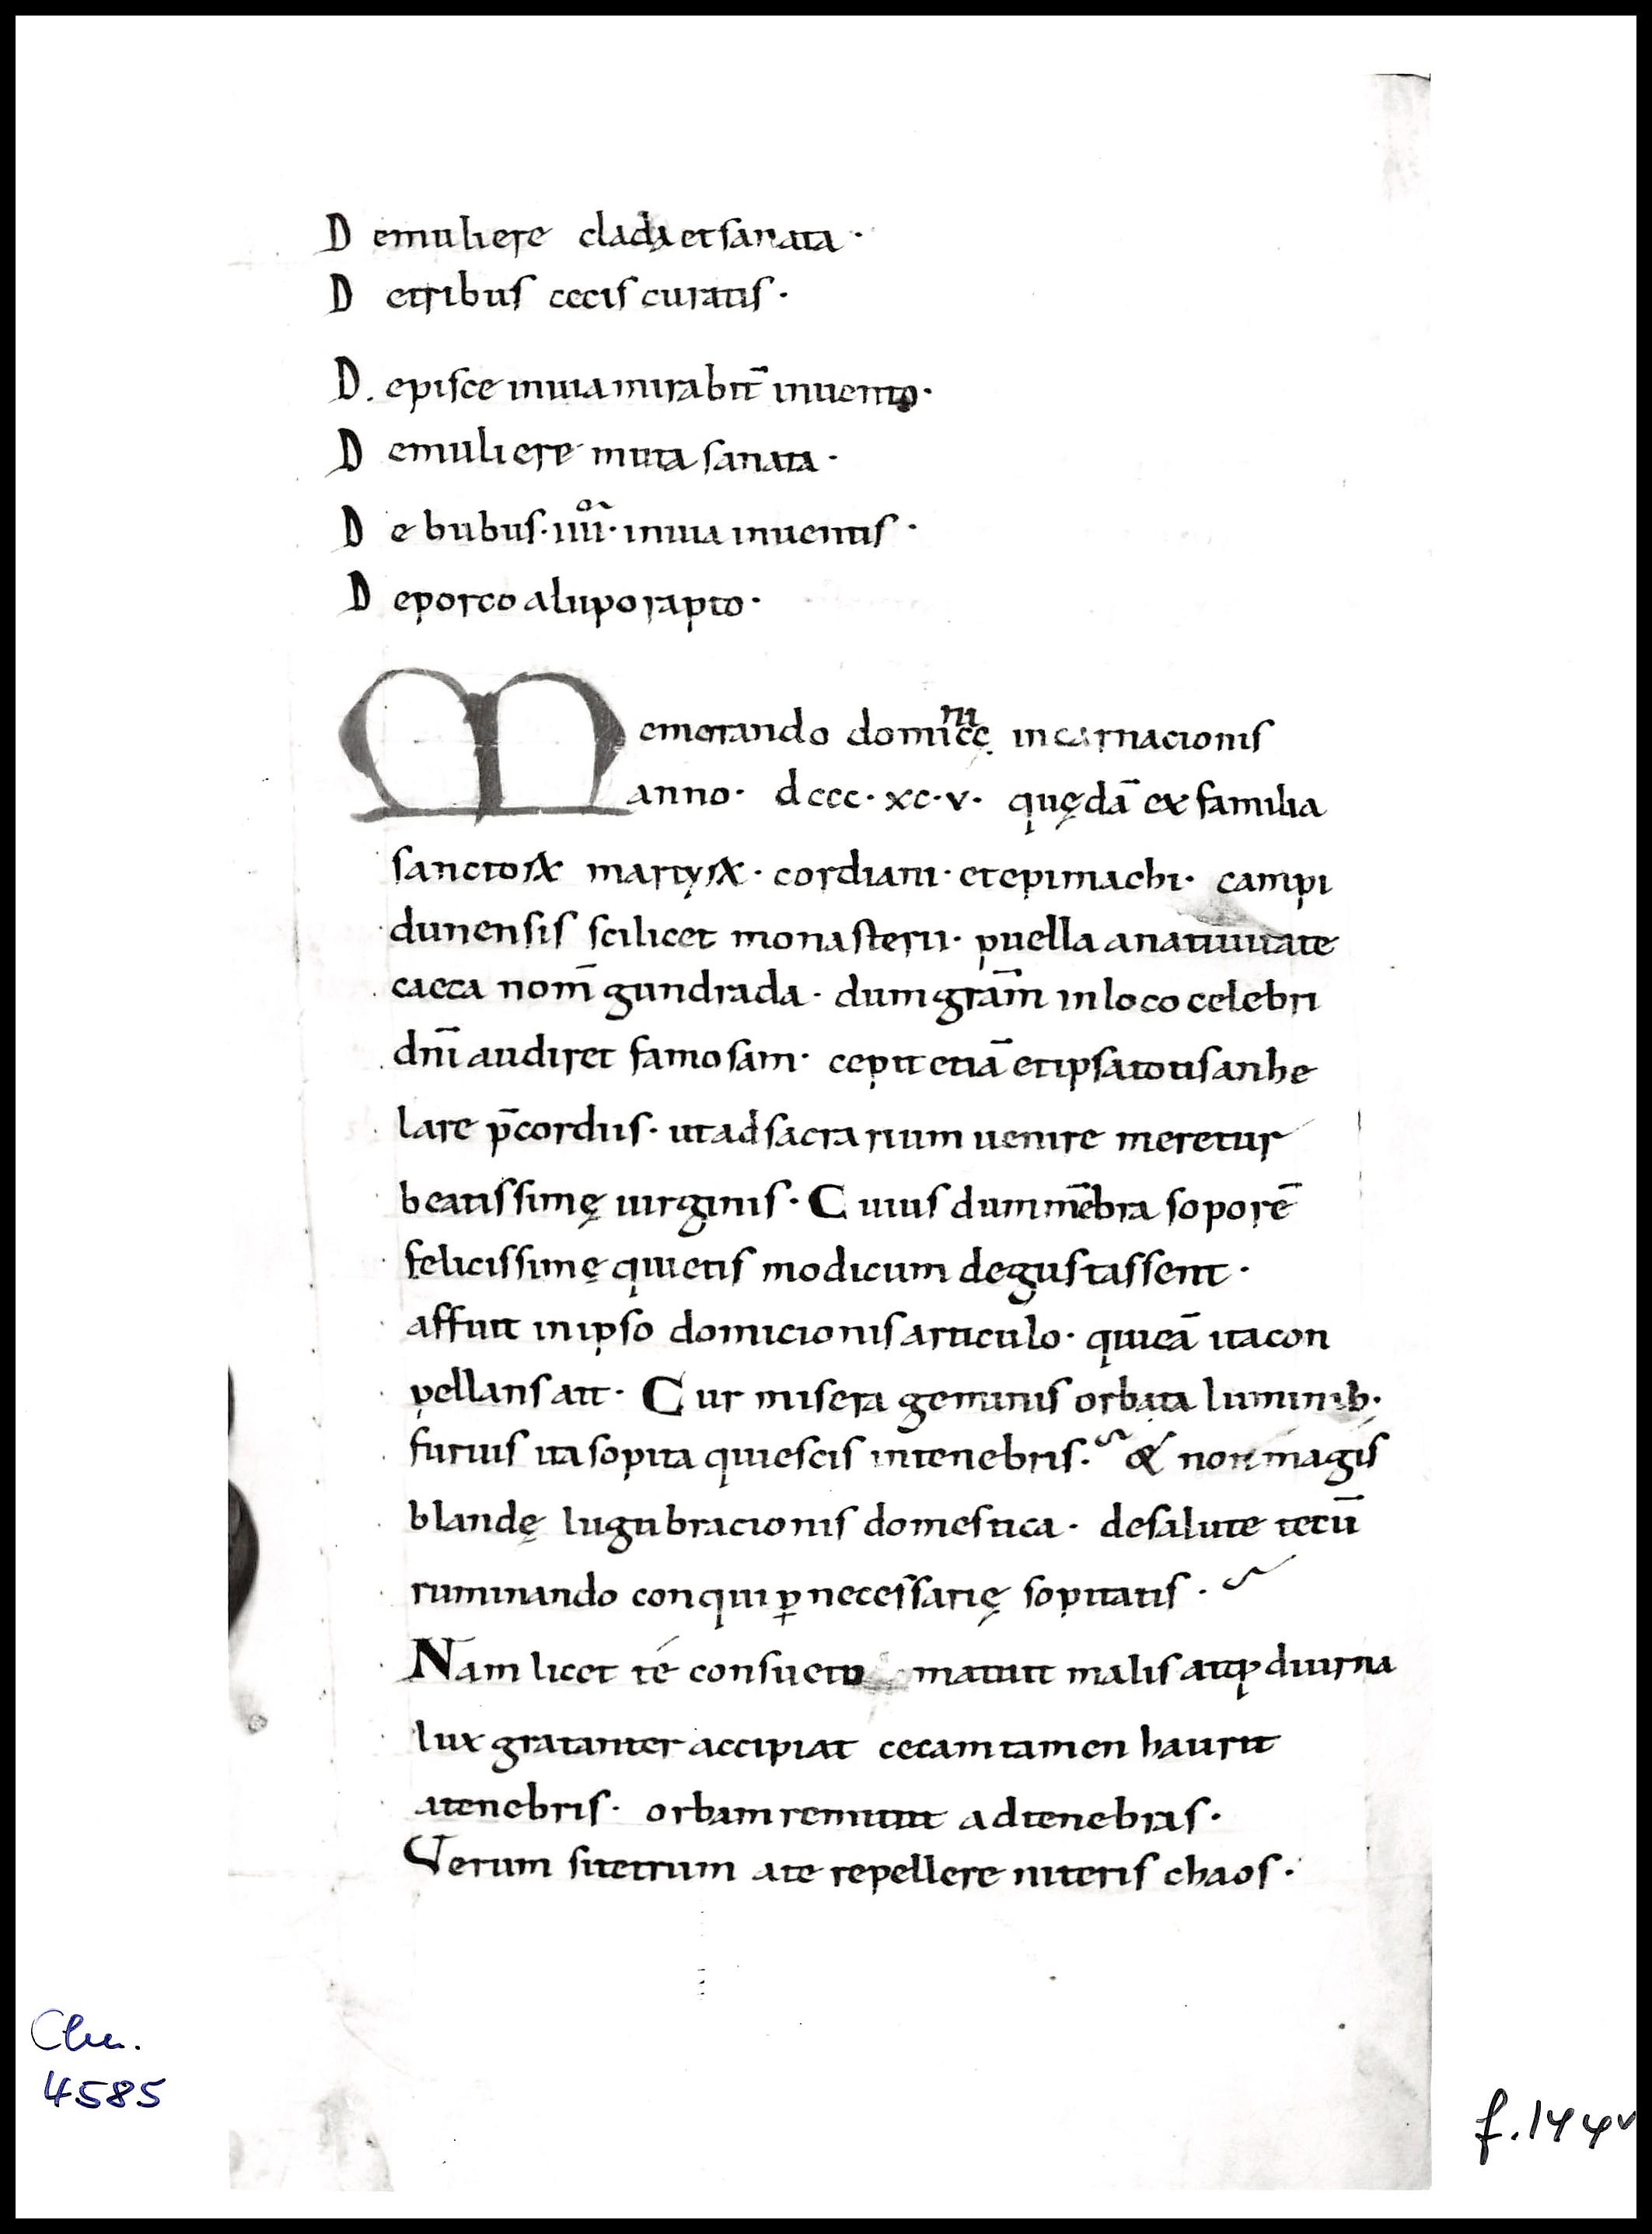 De muliere clada et sanata·
De tribus cecis curatis·
De pisce in uia mirabit̄ inuento·
De muliere muta sanata·
De bubus·iiiiºʳ·in uia inuentis·
De porco a lupo rapto·
Memorando dominicę incarnacionis
anno· dccc·xc·v· quędā ex familia
sanctoꝝ martyꝝ· cordiani· et epimachi· campi
dunensis scilicet monasterii· puella a natiuitate
caeca nom̄ gundrada· dum gram̄ in loco celebri
dnī audiret famosam· cepit etiā et ipsa totis anhe
lare p̄cordiis· ut ad sacrarium uenire meretur
beatissimę uirginis· Cuius dum mēbra soporē
felicissimę quietis modicum degustassent·
affuit in ipso domicionis articulo· qui eā ita con
pellans ait· Cur misera geminis orbata luminib·
furuis ita sopita quiescis in tenebris· & non magis
blandę lugubracionis domestica· de salute tecū
ruminando conqui ꝑnecessarię sopitatis·
Nam licet té consueto matutt malis atqꝫ diurna
lux gratanter accipiat cecam tamen haurit
a tenebris· orbam remittit ad tenebras·
Verum si tetrum a te repellere niteris chaos·
Clm.
4585
f.144v